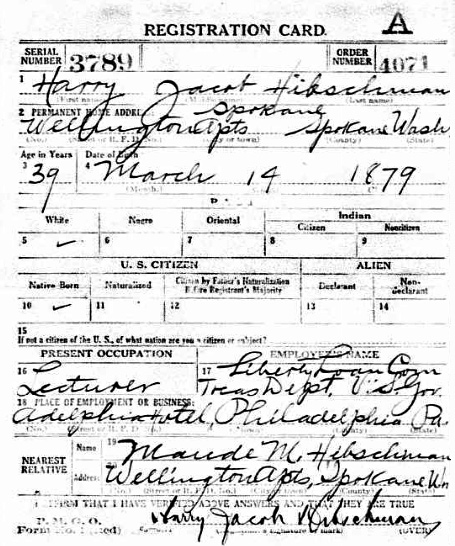 REGISTRATION CARD. A
SERIAL NUMBER 3789 ORDER NUMBER 4071
1 Harry Jacob Hibschman
(First name) (Middle name) (Last name)
2 PERMANENT HOME ADDRESS: Spokane
Wellington Apts Spokane Wash
(No.) (Street or R. F. D. No.) (City or town) (County) (State)
Age in Years Date of Birth
3 39 4 March 14 1879
(Month.)
White Negro Oriental Indian
Citizen Noncitizen
5 ✓ 6 7 8 9
U. S. CITIZEN ALIEN
Native Born Naturalized Citizen by Father's Naturalization Before Registrant's Majority Declarant Non-declarant
10 ✓ 11 12 13 14
15
If not a citizen of the U. S., of what nation are you a citizen or subject?
PRESENT OCCUPATION EMPLOYER'S NAME
16 Lecturer 17 Liberty Loan Com
Treas Dept. U. S. Gov.
18 PLACE OF EMPLOYMENT OR BUSINESS:
Adelphia Hotel, Philadelphia Pa.
(No.) (Street or R. F. D. No.) (County) (State)
NEAREST RELATIVE Name 19 Maude M. Hibschman
Address Wellington Apts, Spokane Wn
(No.) (Street or R. F. D. No.) (City or town) (County) (State)
I AFFIRM THAT I HAVE VERIFIED ABOVE ANSWERS AND THAT THEY ARE TRUE
P. M. G. O.
Form No. 1 (Red) Harry Jacob Hibschman
(OVER)